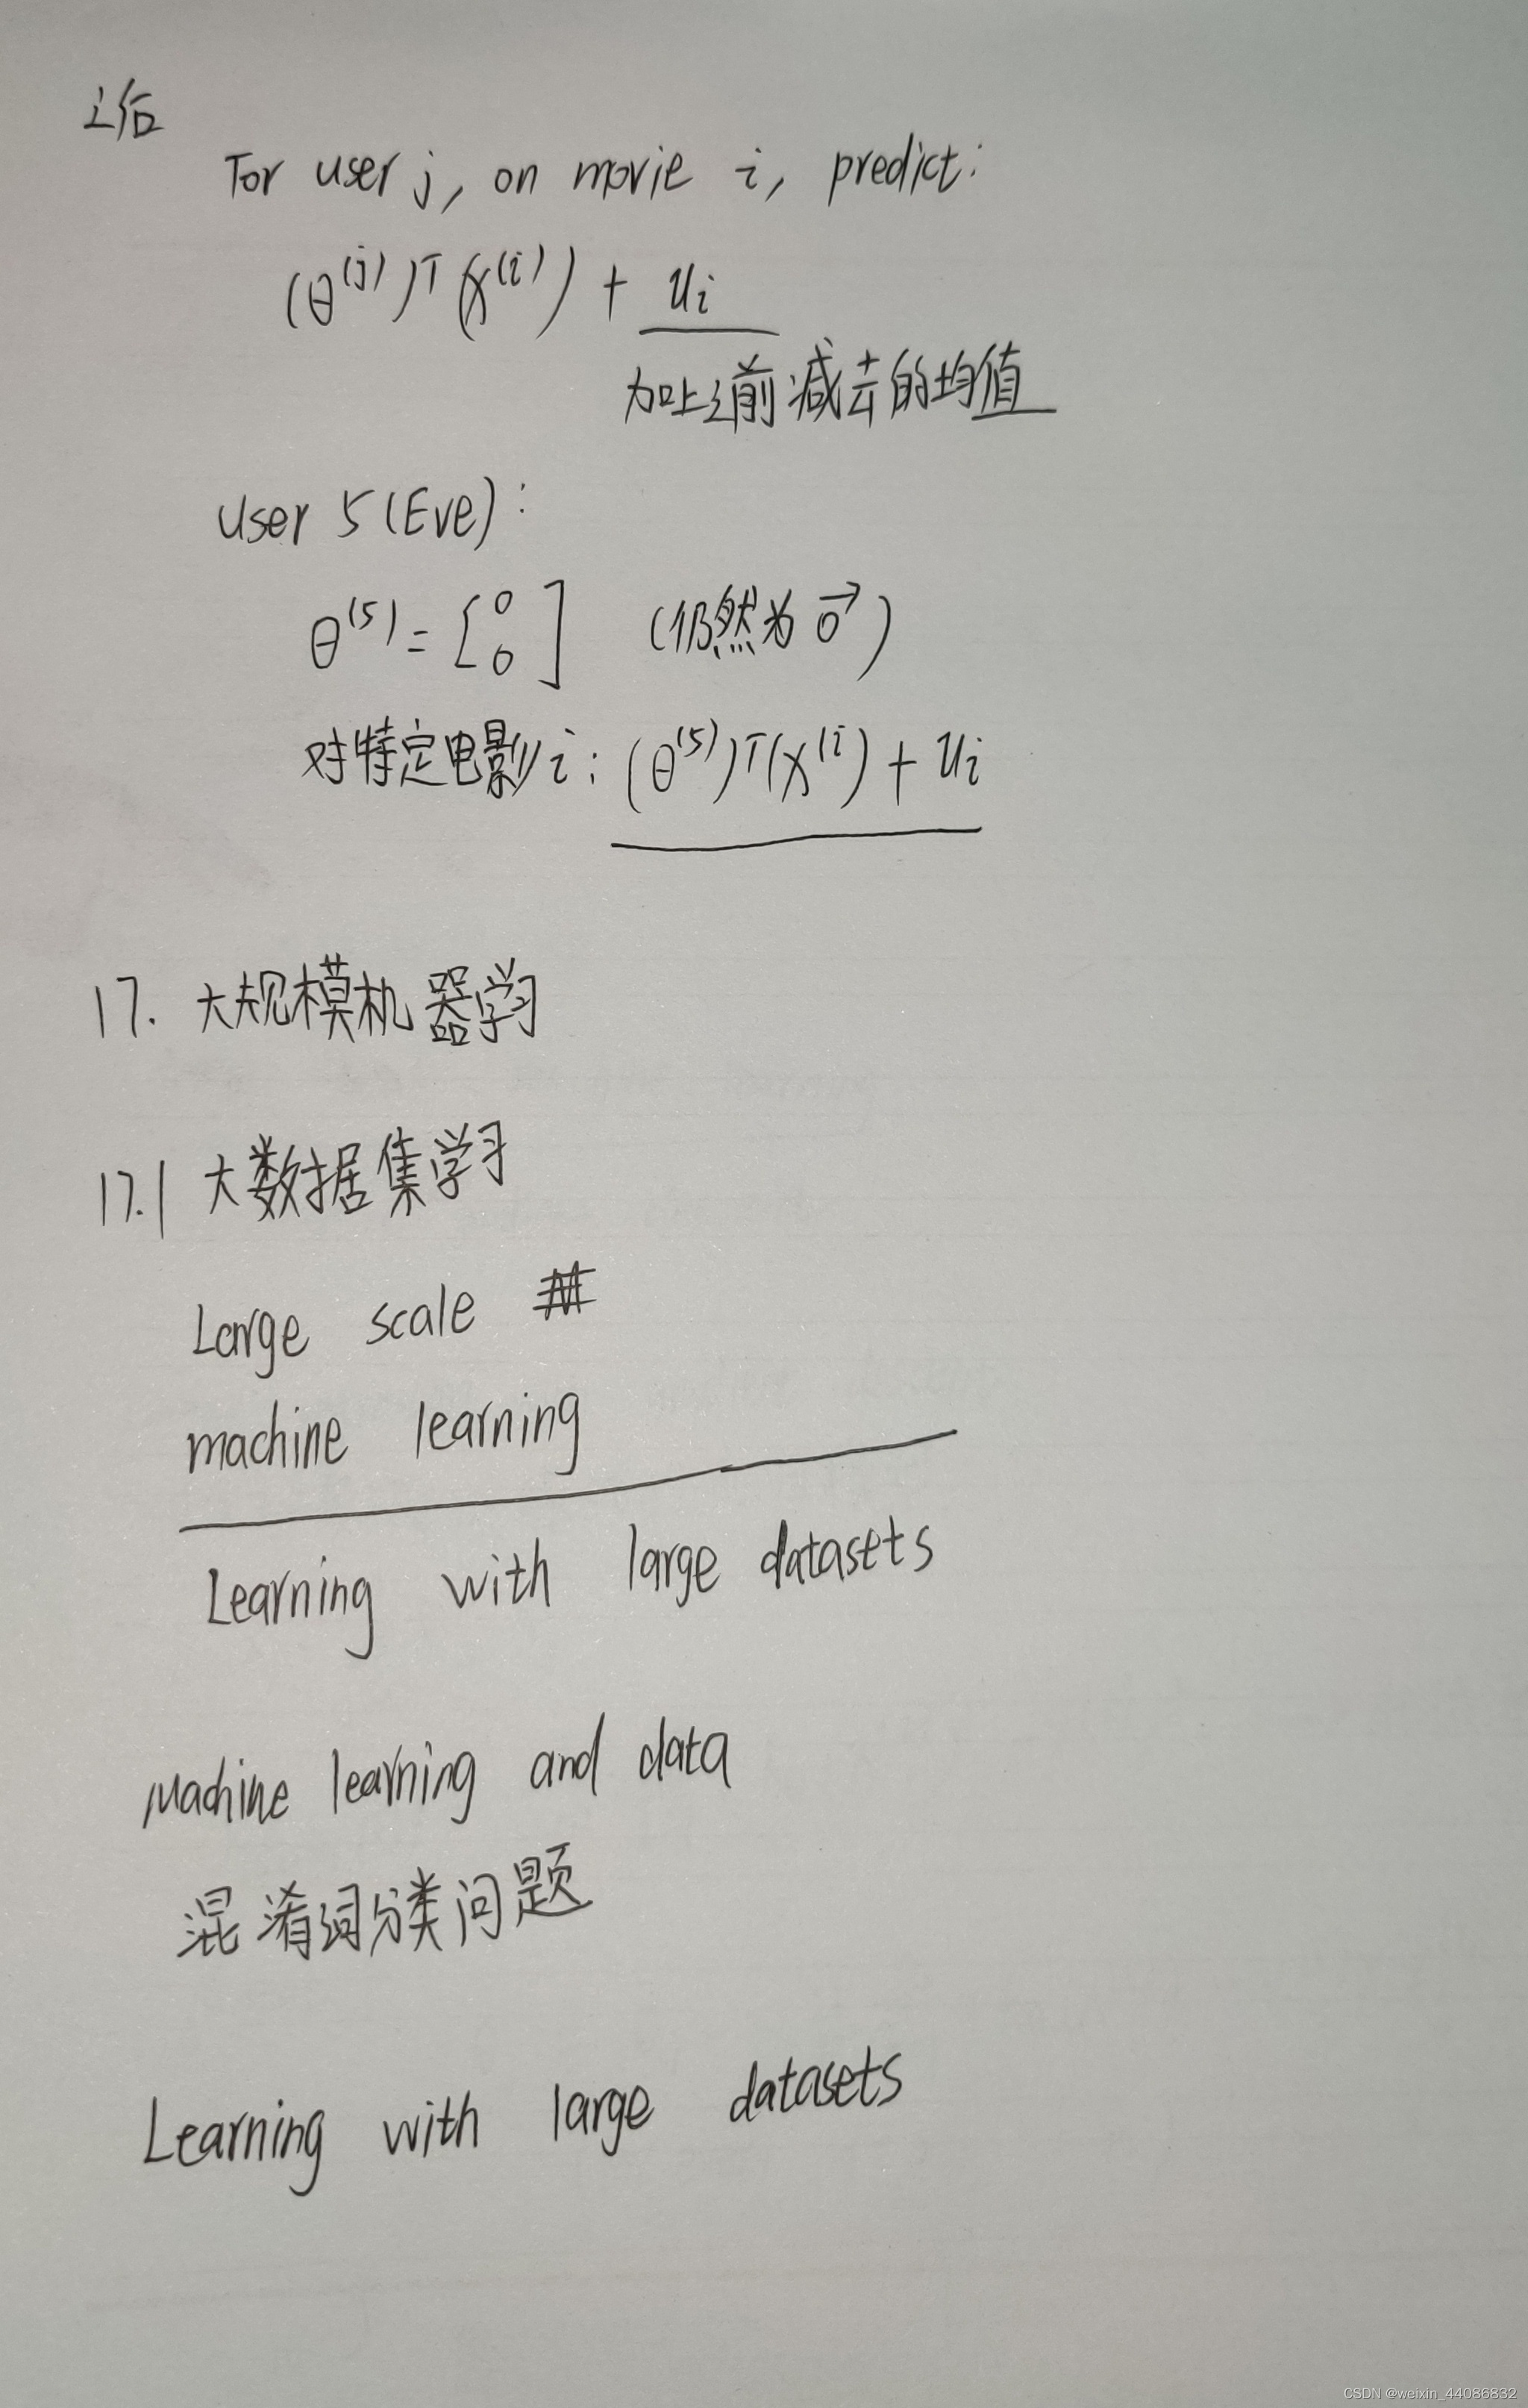 之后
For user j, on movie i, predict:
(θ^(j))^T (x^(i)) + u_i
加上之前减去的均值
user 5 (Eve):
θ^(5) = [0 0] (仍然为 0⃗)
对特定电影 i: (θ^(5))^T (x^(i)) + u_i
17. 大规模机器学习
17.1 大数据集学习
Large scale
machine learning
Learning with large datasets
Machine learning and data
混淆词分类问题
Learning with large datasets
CSDN @weixin_44086832